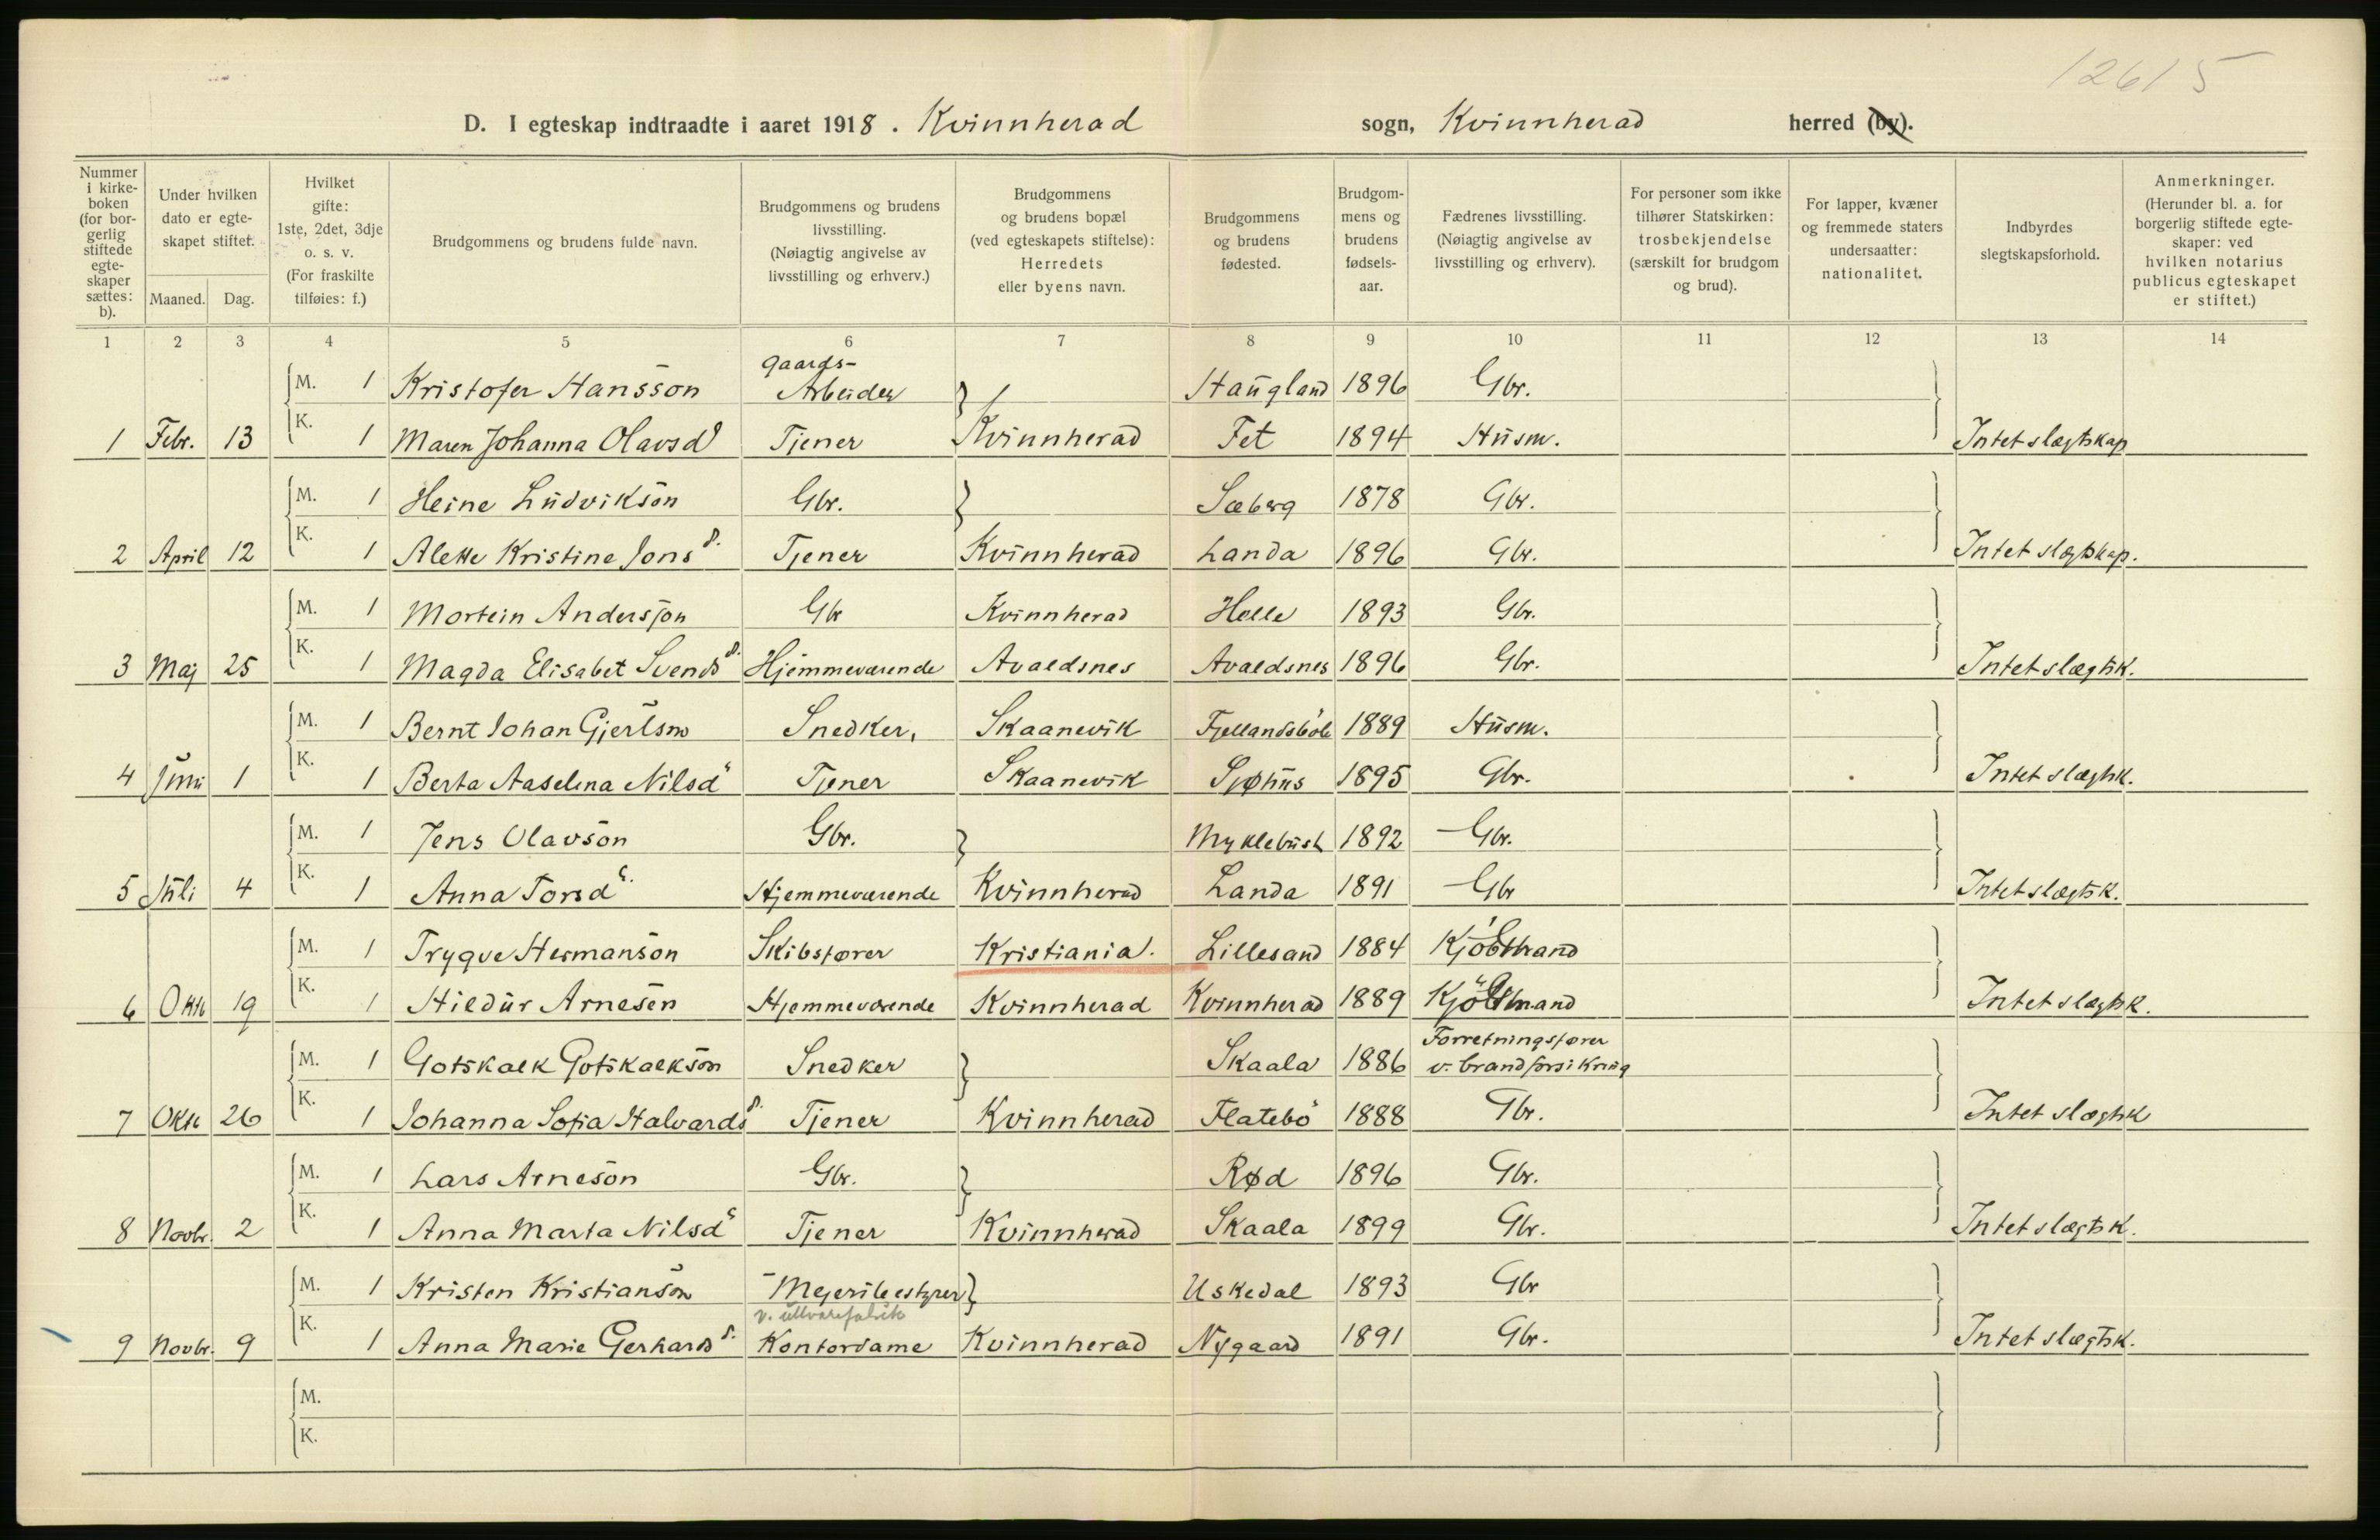 12615
D. I egteskap indtraadte i aaret 1918. Kvinnherad sogn, Kvinnherad herred (by).
Nummer i kirke-boken (for bor-gerlig stiftede egte-skaper sættes: b).
Under hvilken dato er egte-skapet stiftet.
Maaned. Dag.
Hvilket gifte: 1ste, 2det, 3dje o. s. v. (For fraskilte tilføies: f.)
Brudgommens og brudens fulde navn.
Brudgommens og brudens livsstilling. (Nøiagtig angivelse av livsstilling og erhverv.)
Brudgommens og brudens bopæl (ved egteskapets stiftelse): Herredets eller byens navn.
Brudgommens og brudens fødested.
Brudgom-mens og brudens fødsels-aar.
Fædrenes livsstilling. (Nøiagtig angivelse av livsstilling og erhverv).
For personer som ikke tilhører Statskirken: trosbekjendelse (særskilt for brudgom og brud).
For lapper, kvæner og fremmede staters undersaatter: nationalitet.
Indbyrdes slegtskapsforhold.
Anmerkninger. (Herunder bl. a. for borgerlig stiftede egte-skaper: ved hvilken notarius publicus egteskapet er stiftet.)
1 2 3 4 5 6 7 8 9 10 11 12 13 14
M. 1 Kristofer Hansson Gaards-Arbeider Haugland 1896 Gbr.
1 Febr. 13 K. 1 Maren Johanna Olavsd Tjener Kvinnherad Fet 1894 Husm. Intet slægtskap
M. 1 Heine Ludvikson Gbr. Sæberg 1878 Gbr.
2 April 12 K. 1 Alette Kristine Jons d. Tjener Kvinnherad Landa 1896 Gbr. Intet slægtskap.
M. 1 Mortein Andersson Gbr Kvinnherad Helle 1893 Gbr.
3 Maj 25 K. 1 Magda Elisabet Svends d. Hjemmeværende Avaldsnes Avaldsnes 1896 Gbr. Intet slægtsk.
M. 1 Bernt Johan Gjertson Snedker, Skaanevik Fjellandsbøle 1889 Husm.
4 Juni 1 K. 1 Berta Aaselina Nilsd Tjener Skaanevik Sjøhus 1895 Gbr. Intet slægtsk.
M. 1 Jens Olavson Gbr. Myklebust 1892 Gbr.
5 Juli 4 K. 1 Anna Torsd. Hjemmeværende Kvinnherad Landa 1891 Gbr Intet slægtsk.
M. 1 Trygve Hermanson Skibsfører Kristiania. Lillesand 1884
6 Oktb 19 K. 1 Hildur Arnesen Hjemmeværende Kvinnherad Kvinnherad 1889 Intet slægtsk.
M. 1 Gotskalk Gotskalkson Snedker Skaala 1886 Forretningsfører v. brandforsikring
7 Oktb 26 K. 1 Johanna Sofia Halvards d. Tjener Kvinnherad Flatebö 1888 Gbr. Intet slægtsk
M. 1 Lars Arneson Gbr. Rød 1896 Gbr.
8 Novbr. 2 K. 1 Anna Marta Nilsd Tjener Kvinnherad Skaala 1899 Gbr. Intet slægtsk.
M. 1 Kristen Kristianson Mejeribestyrer Uskedal 1893 Gbr
v. ullvarefabrik
9 Novbr. 9 K. 1 Anna Marie Gerhards d. Kontordame Kvinnherad Nygaard 1891 Gbr. Intet slægtsk.
M.
K.